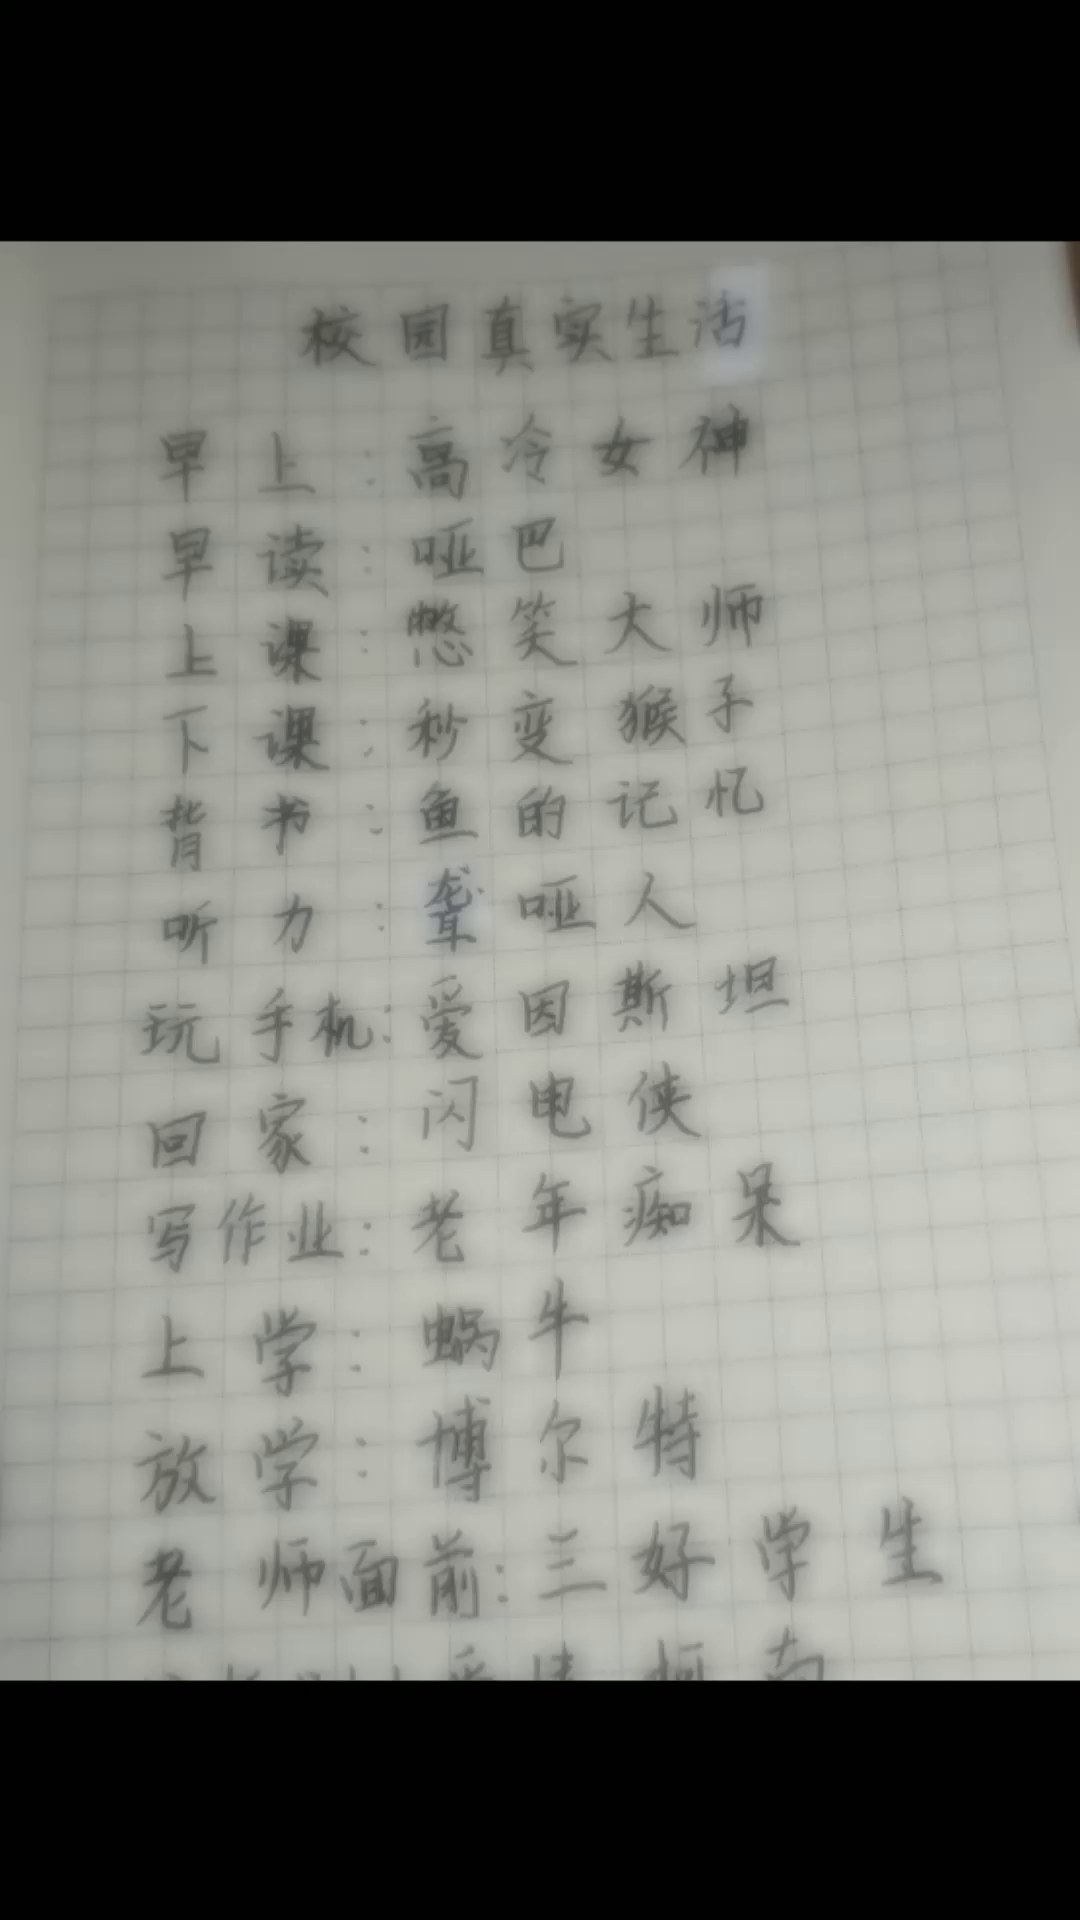 校园真实生活
早上:高冷女神
早读:哑巴
上课:憋笑大师
下课:秒变猴子
背书:鱼的记忆
听力:聋哑人
玩手机:爱因斯坦
回家:闪电侠
写作业:老年痴呆
上学:蜗牛
放学:博尔特
老师面前:三好学生